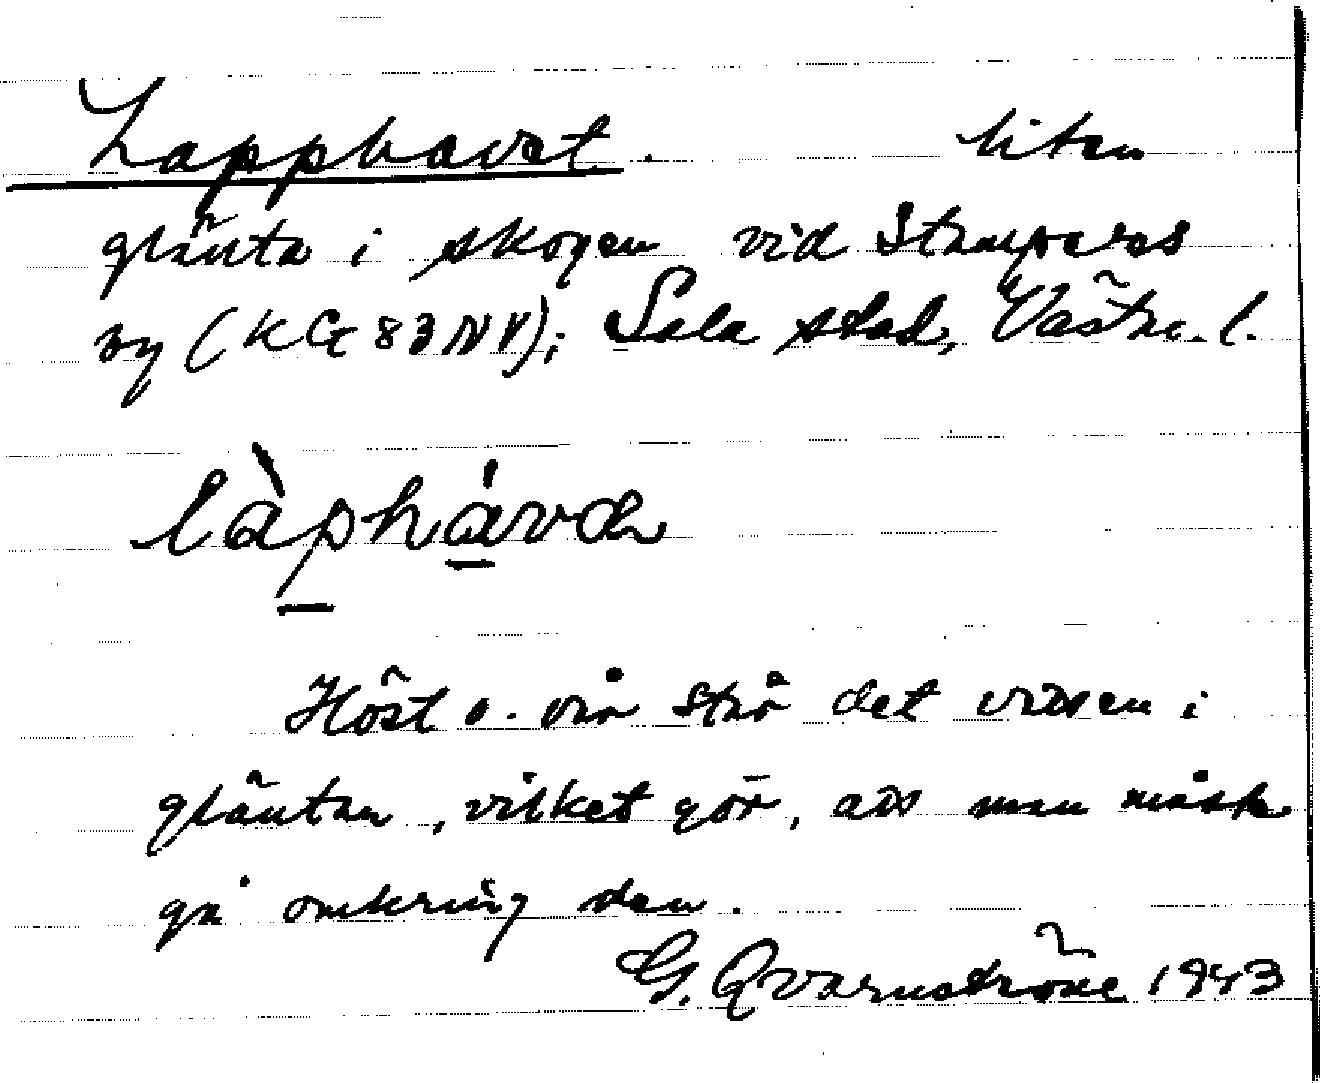 Lapphavet. liten
glänta i skogen vid Stampers
ny (KG 83 NV); Sala stad, Västm. l.
làphávæ
Höst o. vår står det vatten i
gläntan, vilket gör, att man måste
gå omkring den.
G. Qvarnström 1943